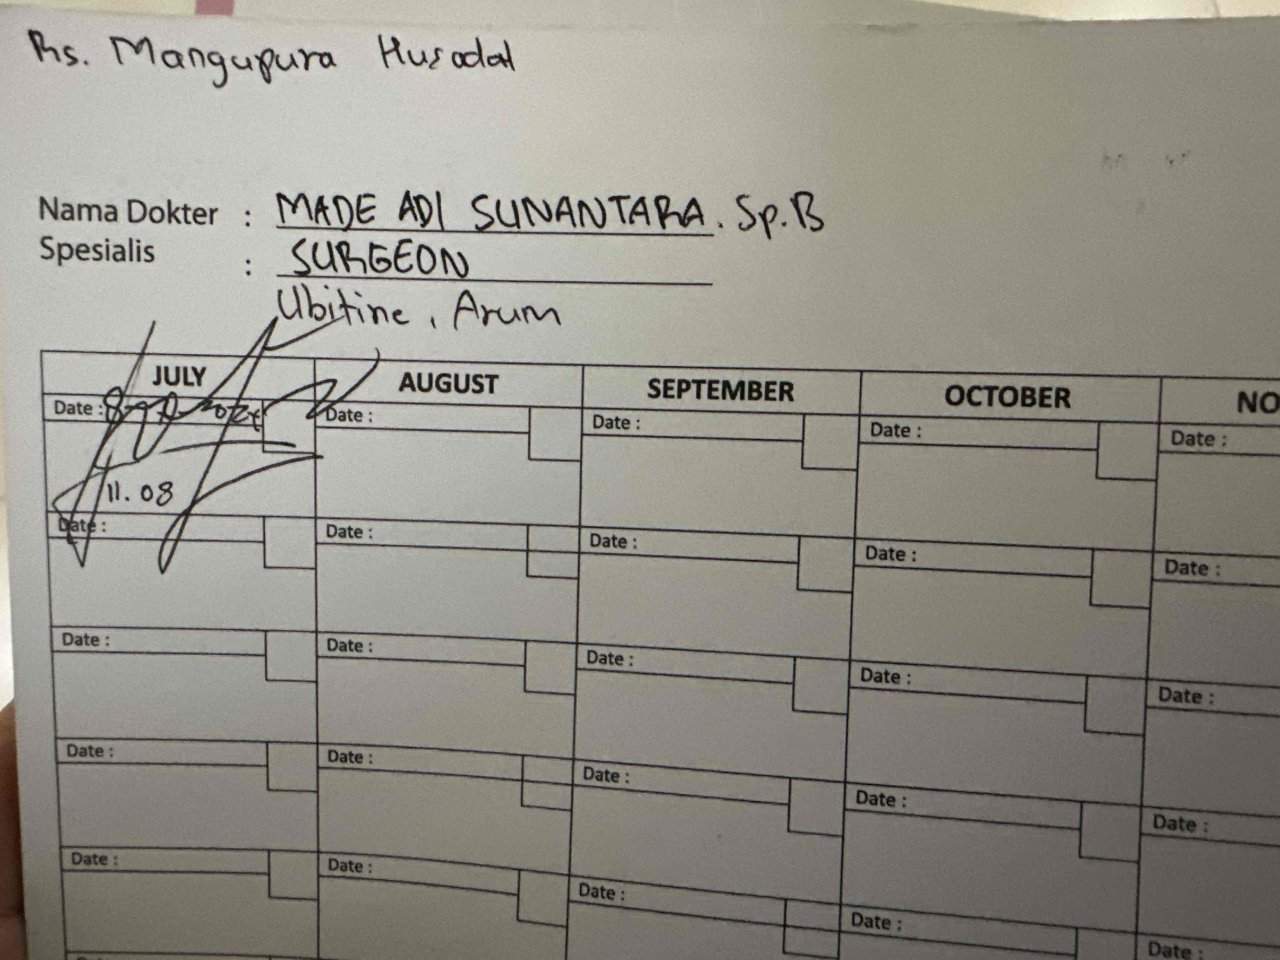 Rs. Mangupura Husada
Nama Dokter : MADE ADI SUNANTARA. Sp.B
Spesialis : SURGEON
Ubitine, Arum
JULY AUGUST SEPTEMBER OCTOBER NO
Date : Date : Date : Date : Date :
11.08
Date : Date : Date : Date : Date :
Date : Date : Date : Date : Date :
Date : Date : Date : Date : Date :
Date : Date : Date : Date : Date :